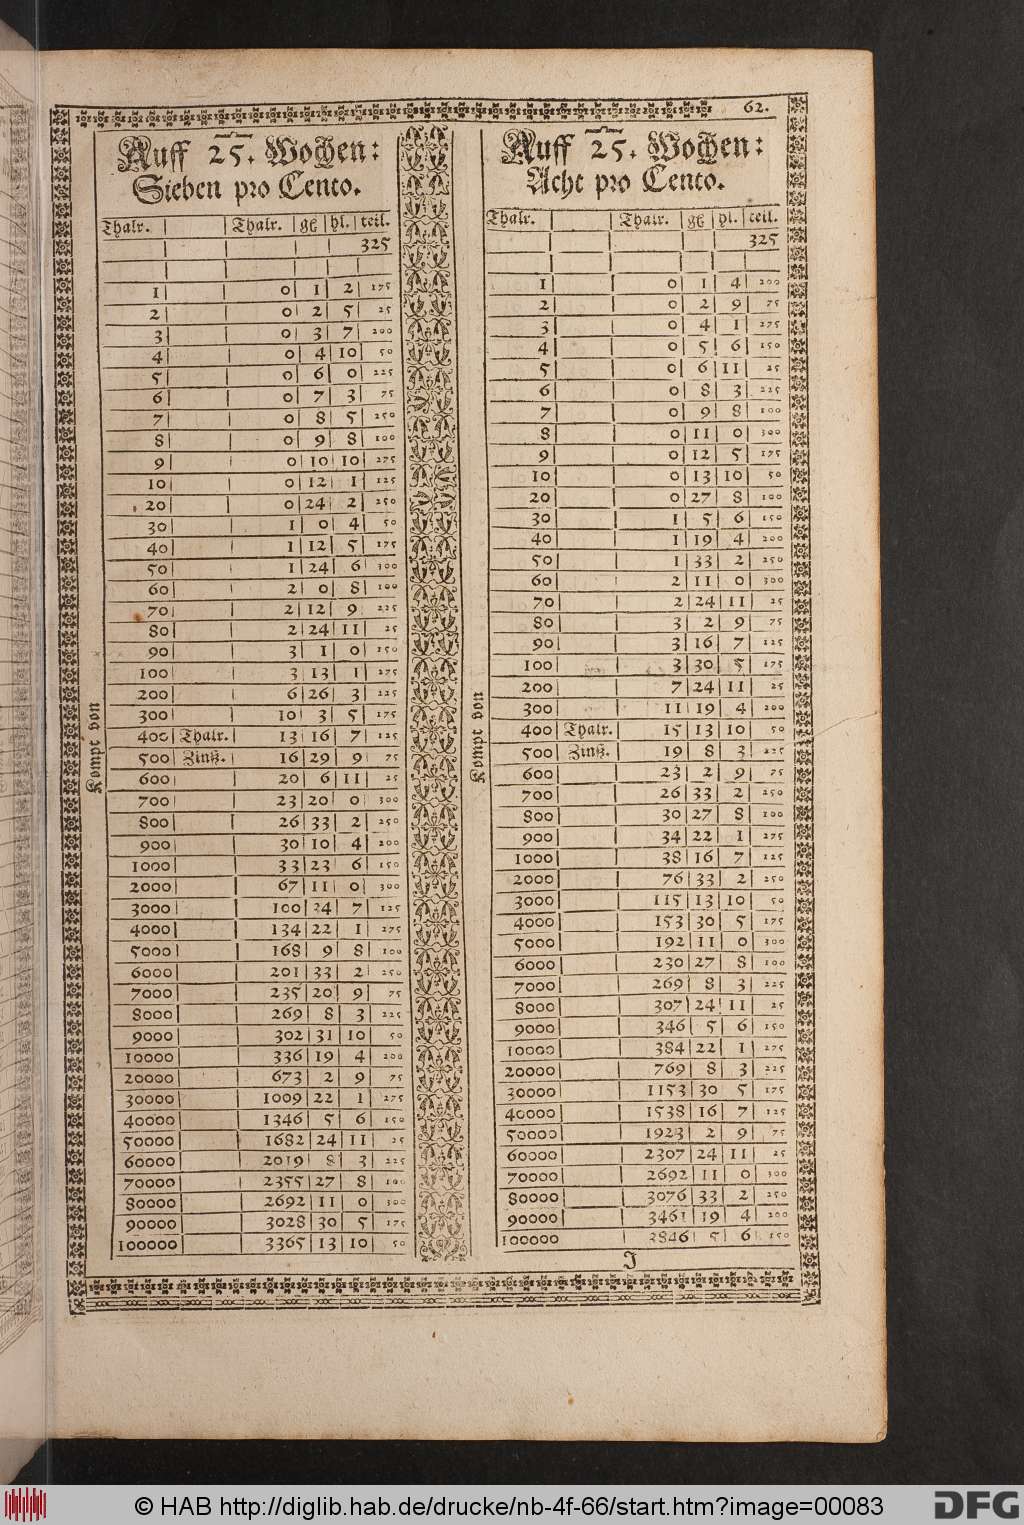 62.
Auff 25. Wochen:
Sieben pro Cento.
Thalr. Thalr. gß hl. teil.
325
1 0 1 2 175
2 0 2 5 25
3 0 3 7 200
4 0 4 10 50
5 0 6 0 225
6 0 7 3 75
7 0 8 5 250
8 0 9 8 100
9 0 10 10 275
10 0 12 1 125
20 0 24 2 250
30 1 0 4 50
40 1 12 5 175
50 1 24 6 300
60 2 0 8 100
70 2 12 9 225
80 2 24 11 25
90 3 1 0 250
100 3 13 1 275
200 6 26 3 225
300 10 3 5 175
Kompt von
400 Thalr. 13 16 7 125
500 Zinß. 16 29 9 75
600 20 6 11 25
700 23 20 0 300
800 26 33 2 250
900 30 10 4 200
1000 33 23 6 150
2000 67 11 0 300
3000 100 34 7 125
4000 134 22 1 275
5000 168 9 8 100
6000 201 33 2 250
7000 235 20 9 75
8000 269 8 3 225
9000 302 31 10 50
10000 336 19 4 200
20000 673 2 9 75
30000 1009 22 1 275
40000 1346 5 6 150
50000 1682 24 11 25
60000 2019 8 3 225
70000 2355 27 8 100
80000 2692 11 0 300
90000 3028 30 5 175
100000 3365 13 10 50
Auff 25. Wochen:
Acht pro Cento.
Thalr. Thalr. gß hl. teil.
325
1 0 1 4 200
2 0 2 9 75
3 0 4 1 275
4 0 5 6 150
5 0 6 11 25
6 0 8 3 225
7 0 9 8 100
8 0 11 0 300
9 0 12 5 175
10 0 13 10 50
20 0 27 8 100
30 1 5 6 150
40 1 19 4 200
50 1 33 2 250
60 2 11 0 300
70 2 24 11 25
80 3 2 9 75
90 3 16 7 125
100 3 30 5 175
200 7 24 11 25
300 11 19 4 200
Kompt von
400 Thalr. 15 13 10 50
500 Zinß. 19 8 3 225
600 23 2 9 75
700 26 33 2 250
800 30 27 8 100
900 34 22 1 275
1000 38 16 7 125
2000 76 33 2 250
3000 115 13 10 50
4000 153 30 5 175
5000 192 11 0 300
6000 230 27 8 100
7000 269 8 3 225
8000 307 24 11 25
9000 346 5 6 150
10000 384 22 1 275
20000 769 8 3 225
30000 1153 30 5 175
40000 1538 16 7 125
50000 1923 2 9 75
60000 2307 24 11 25
70000 2692 11 0 300
80000 3076 33 2 250
90000 3461 19 4 200
100000 3846 5 6 150
J
© HAB http://diglib.hab.de/drucke/nb-4f-66/start.htm?image=00083
DFG